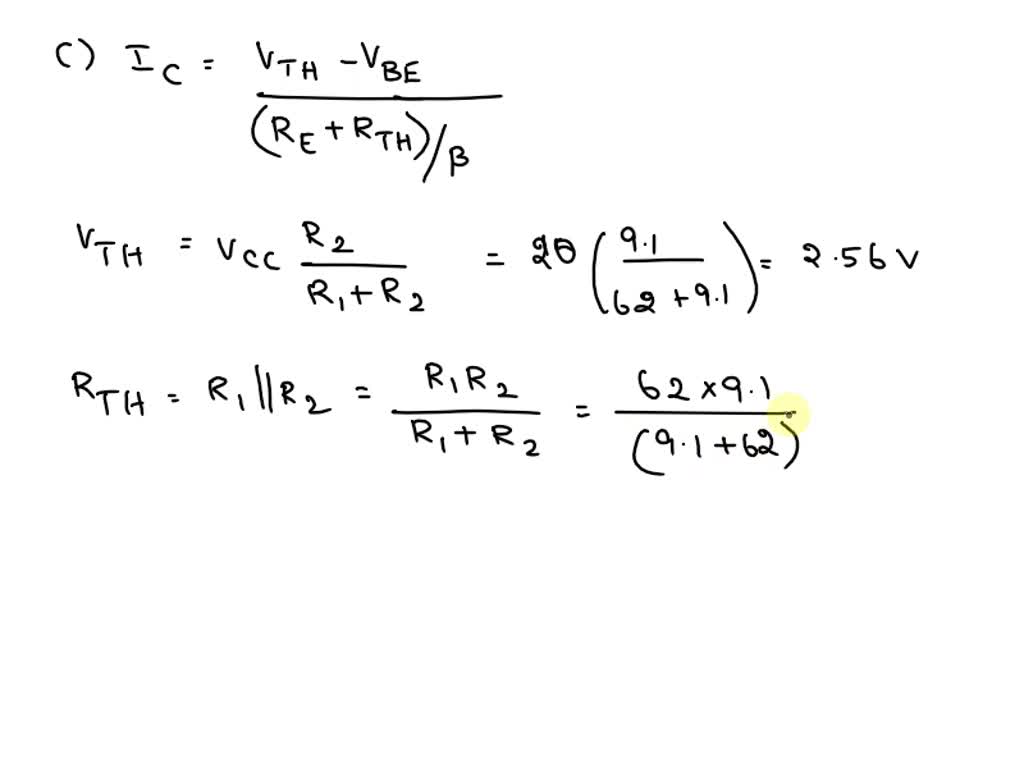 c) I_C = (V_TH - V_BE) / ((R_E + R_TH)/β)
V_TH = V_CC R_2 / (R_1 + R_2) = 20 (9.1 / (62 + 9.1)) = 2.56 V
R_TH = R_1 || R_2 = R_1 R_2 / (R_1 + R_2) = 62 × 9.1 / (9.1 + 62)